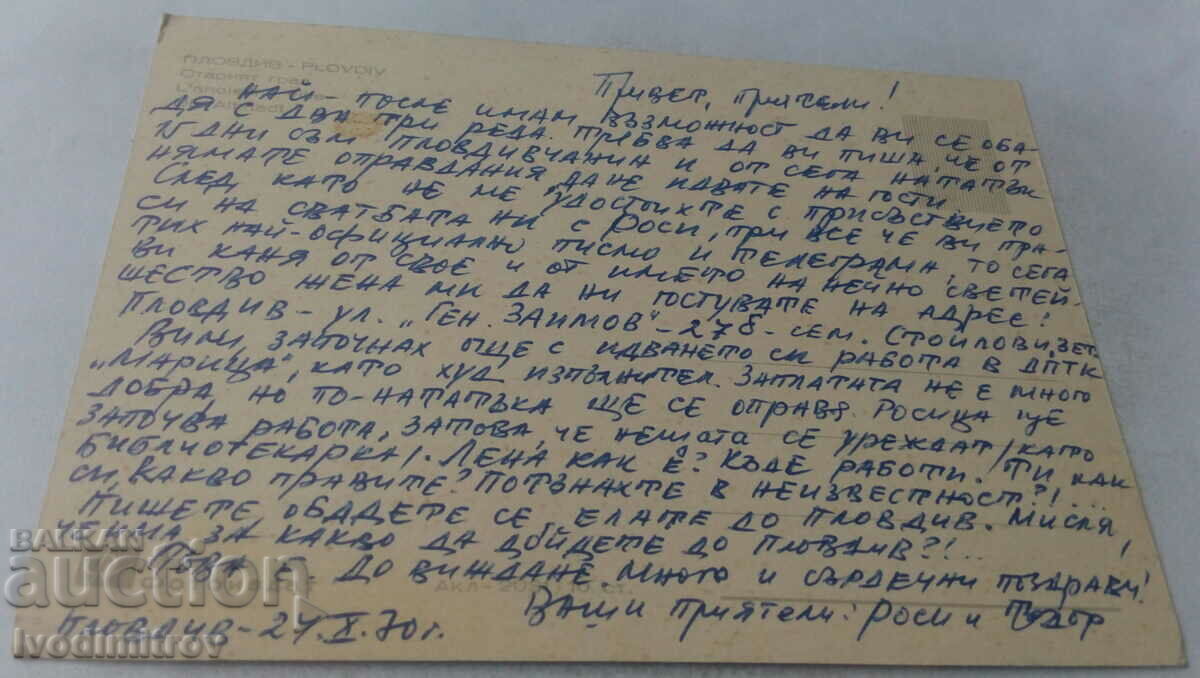 ПЛОВДИВ - PLOVDIV
Старият град
Привет, приятели!
Най-после имам възможност да ви се оба-
дя с два три реда. Трябва да ви пиша, че от
15 дни съм пловдивчанин и от сега нататък
нямате оправдания да не идвате на гости.
След като не ме удостоихте с присъствието
си на сватбата ни с Роси, при все че ви пра-
тих най-официално писмо и телеграма, то сега
ви каня от свое и от името на нейно светей-
шество жена ми да ни гостувате на адрес!
Пловдив - ул. "Ген. Заимов" - 27б - сем. Стоилови, зет.
Вили, започнах още с идването си работа в ДПТК
"Марица", като худ. изпълнител. Заплатата не е много
добра, но по-нататъка ще се оправя. Росица ще
започва работа, затова, че нещата се уреждат /като
библиотекарка/. Лена как е? Къде работи. Ти как
си, какво правите? Потънахте в неизвестност?!...
Пишете обадете се елате до Пловдив. Мисля,
че има за какво да дойдете до Пловдив?!...
Това е. До виждане. Много и сърдечни поздрави!
Ваши приятели: Роси и Тодор
Пловдив - 24.X.70 г.
BALKAN
auction
ivodimitrov